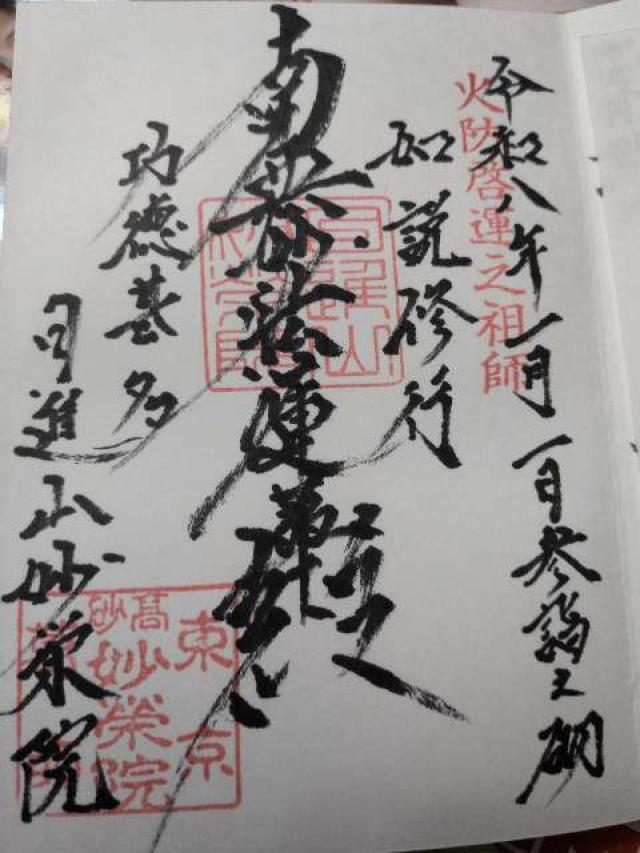 令和八年一月一日参詣之砌
火防啓運之祖師
如説修行
南無妙法蓮華経
功徳甚多
司進山妙栄院
東京
高砂
妙栄院